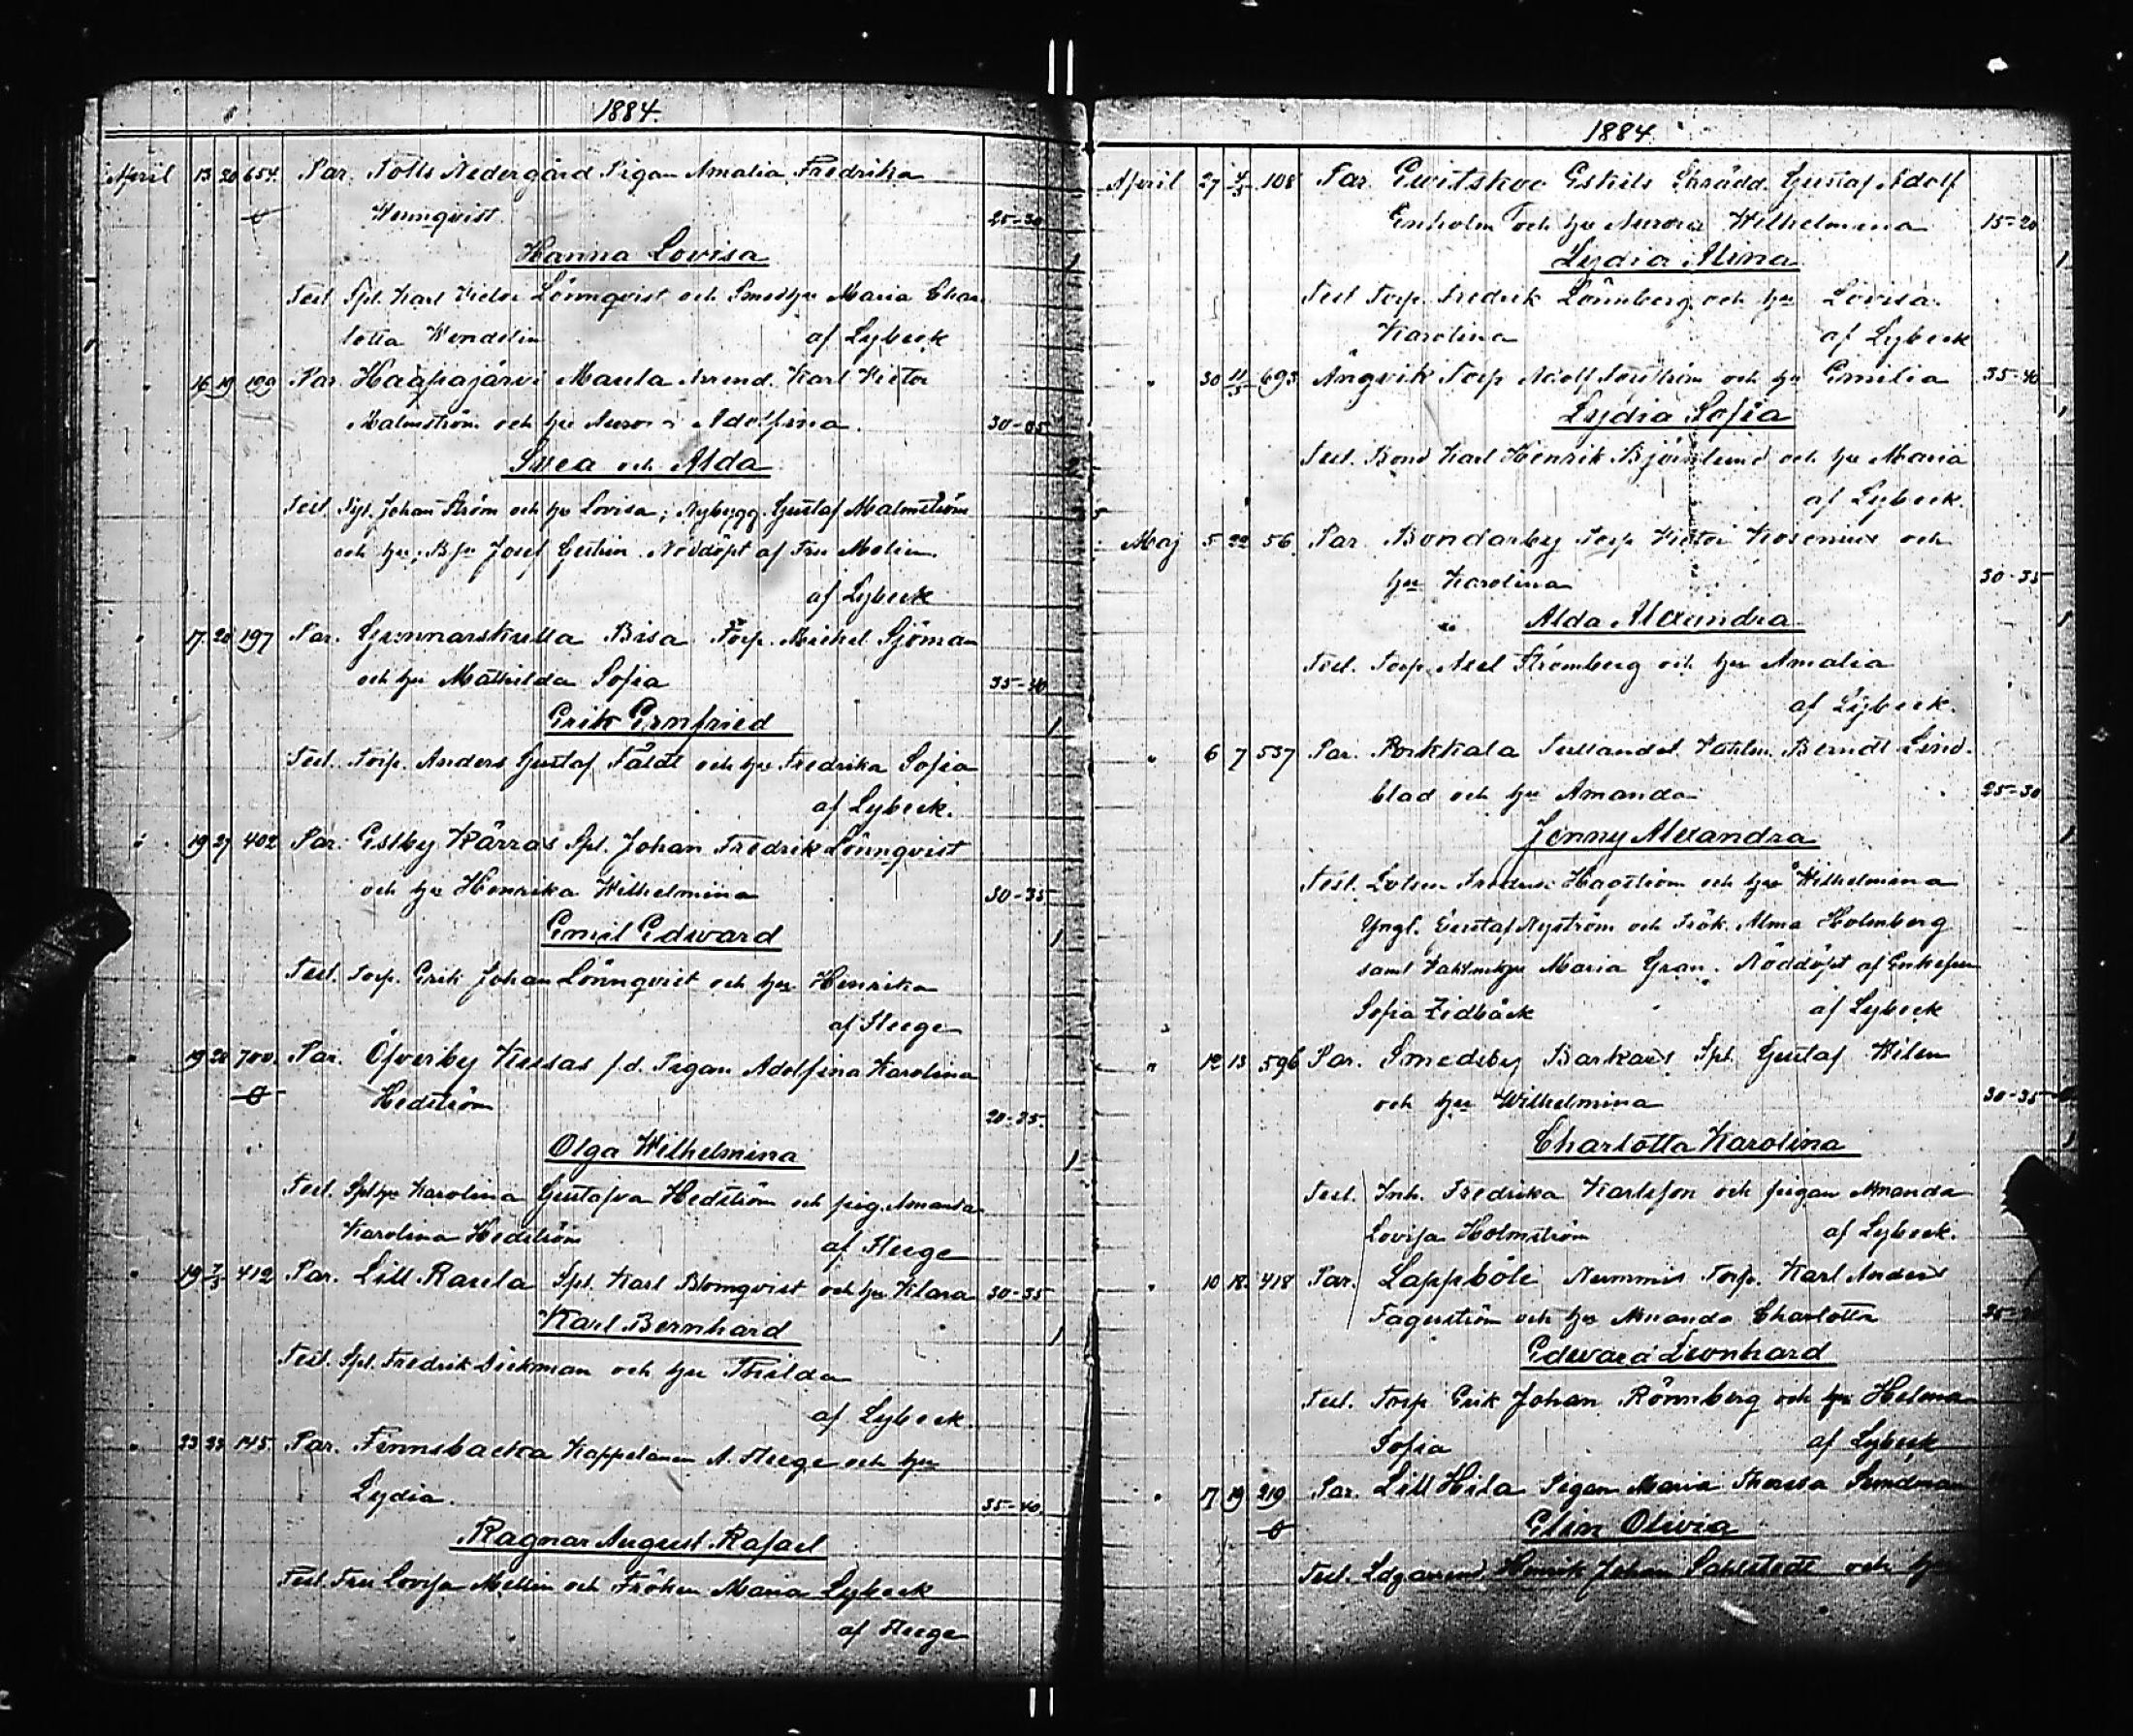 1884.
April 13 20 654. Par. Tolls Nedergård Pigan Amalia Fredrika
Wennqvist 25-30
Hanna Lovisa 1
Test. Spl. Karl Victor Lönnqvist och Smedhu Maria Char
lotta Wendelin af Lybeck
" 16 19 199 Par. Haapajärvi Maula Arrend. Karl Victor
Malmström och hu Aurora Adolfina 30-35
Svea och Alda 2
Test. Johan Ström och hu Lovisa; Nybygg. Gustaf Malmström
och hu; Josef Nöddöpt af Fru Melin.
af Lybeck
" 17 20 197 Par. Gunnarskulla Bisa Torp. Michel Sjöman
och hu Mathilda Sofia 35-40
Erik Ernfried 1
Test. Torp. Anders Gustaf Fäldt och hu Fredrika Sofia
af Lybeck.
" 19 27 402 Par. Estby Kärras Spl. Johan Fredrik Lönnqvist
och hu Henrika Wilhelmina 30-35
Emil Edward 1
Test. Torp. Erik Johan Lönnqvist och hu Henrika
af Heege
" 19 20 700. Par. Öfverby Kusas f.d. Pigan Adolfina Karolina
Hedström 20-25.
Olga Wilhelmina 1
Test. Splhu Karolina Gustafva Hedström och pig. Amanda
Karolina Hedström af Heege
" 19 7/5 412 Par. Lill Raula Spl. Karl Blomqvist och hu Klara 30-35
Karl Bernhard 1
Test. Spl. Fredrik Dickman och hu Thilda
af Lybeck
" 23 23 145. Par. Finnsbacka Kappelanen A. Heege och hu
Lydia. 35-40.
Ragnar August Rafael
Test. Fru Lovisa Mellin och Fröken Maria Lybeck
af Heege
1884.
April 27 4/5 108 Par. Evitskog Eskils Skrädd. Gustaf Adolf
Enholm och hu Aurora Wilhelmina 15-20
Lydia Alina 1
Test. Torp. Fredrik Lönnberg och hu Lovisa
Karolina af Lybeck
" 30 11/5 693 Ängvik Torp. Adolf och hu Emilia 35-40
Lydia Sofia 1
Test. Bond Karl Henrik Björklund och hu Maria
af Lybeck.
Maj 5 22 56. Par. Bondarby Torp. Victor Rosenius och
hu Karolina 30-35
Alda Alexandra 1
Test. Torp. Axel Strömberg och hu Amalia
af Lybeck.
" 6 7 537 Par. Porkkala Vaktm. Berndt Lind-
blad och hu Amanda 25-30
Jenny Alexandra 1
Test. Lotsen Fredrik Hagström och hu Wilhelmina
Yngl. Gustaf Nyström och Frök. Alma Holmberg
samt Vaktmhu Maria Gran. Nöddöpt af Enkefru
Sofia Zidbäck af Lybeck
" 12 13 596 Par. Smedsby Barkars Spl. Gustaf Wilen
och hu Wilhelmina 30-35
Charlotta Karolina 1
Test. Inh. Fredrika Karlsson och pigan Amanda
Lovisa Holmström af Lybeck.
" 10 18. 418 Par. Lappböle Nummis Torp. Karl Anders
Fagerström och hu Amanda Charlotta
Edward Leonhard
Test. Torp. Erik Johan Rönnberg och hu Helena
Sofia af Lybeck
" 7 19 219 Par. Lill Hila Pigan Maria Theresa Sundman
Elin Olivia
Test. Ldgarrend. Henrik Johan Dahlstedt och